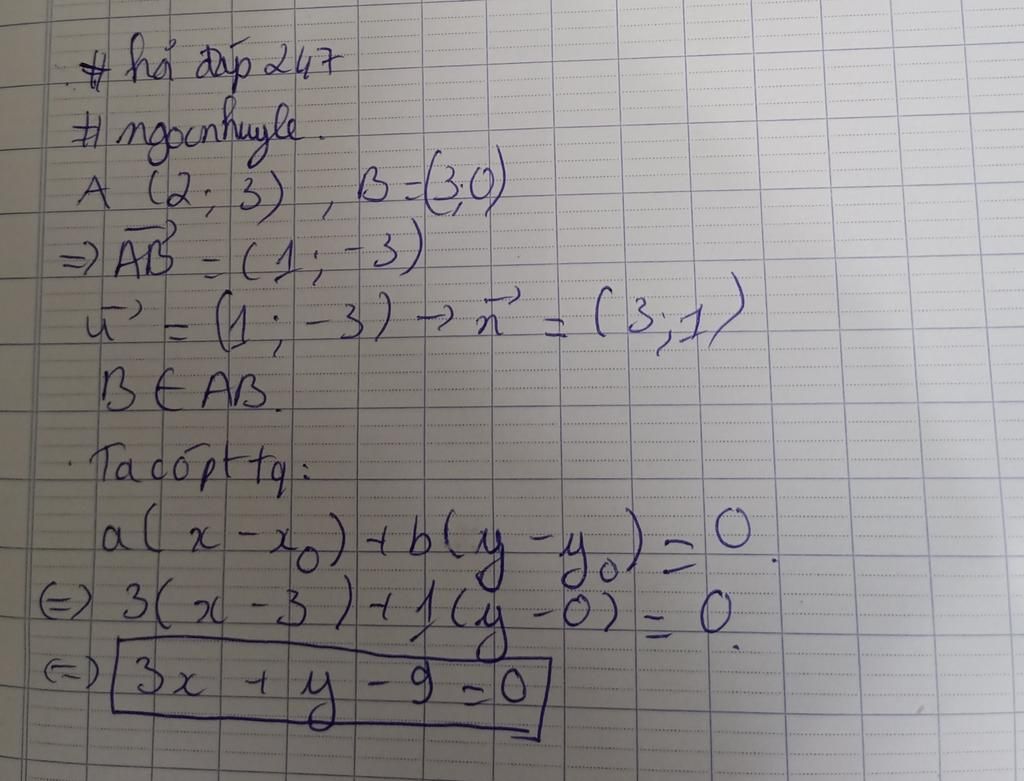 # hỏi đáp 247
# ngocnhuyle.
A (2; 3) , B = (3;0)
=> AB→ = (1; -3)
u→ = (1; -3) → n→ = (3;1)
B ∈ AB.
Ta có pt tq:
a(x - x₀) + b(y - y₀) = 0.
(=) 3(x - 3) + 1(y - 0) = 0.
(=) 3x + y - 9 = 0